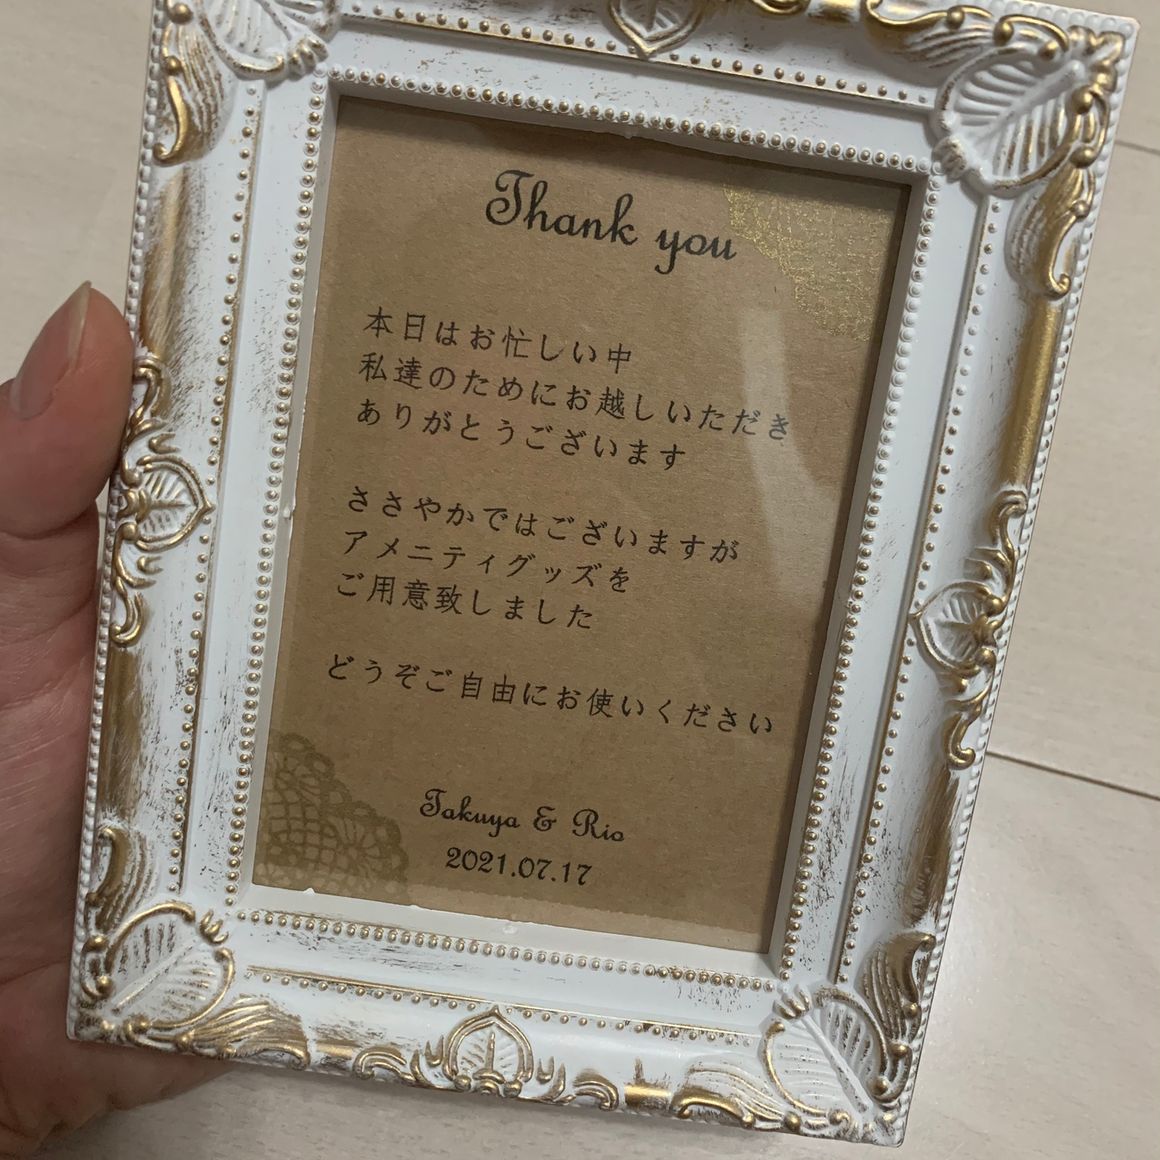 Thank you
本日はお忙しい中
私達のためにお越しいただき
ありがとうございます
ささやかではございますが
アメニティグッズを
ご用意致しました
どうぞご自由にお使いください
Takuya & Rio
2021.07.17